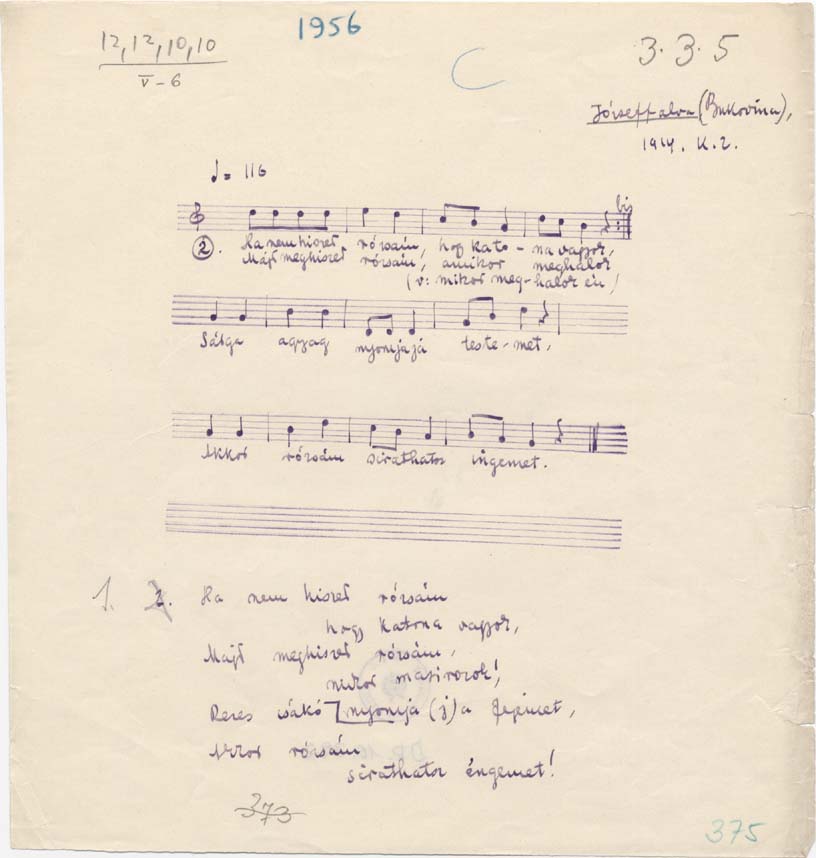 12, 12, 10, 10
V-6
1956
C
3.3.5
Józseffalva (Bukovina),
1914. K.Z.
♩= 116
bis
2. Ha nem hiszel rózsám, hogy kato-na vagyok,
Majd meghiszel rózsám, amikor meghalok
(v: mikor meg-halok én)
Sárga agyag nyomjajá teste-met,
Akkor rózsám sirathatsz ingemet.
1. 2. Ha nem hiszel rózsám
hogy katona vagyok,
Majd meghiszel rózsám,
mikor masirozok!
Rezes csákó nyomja (j)a fejemet,
Akkor rózsám
sirathatsz éngemet!
373
375